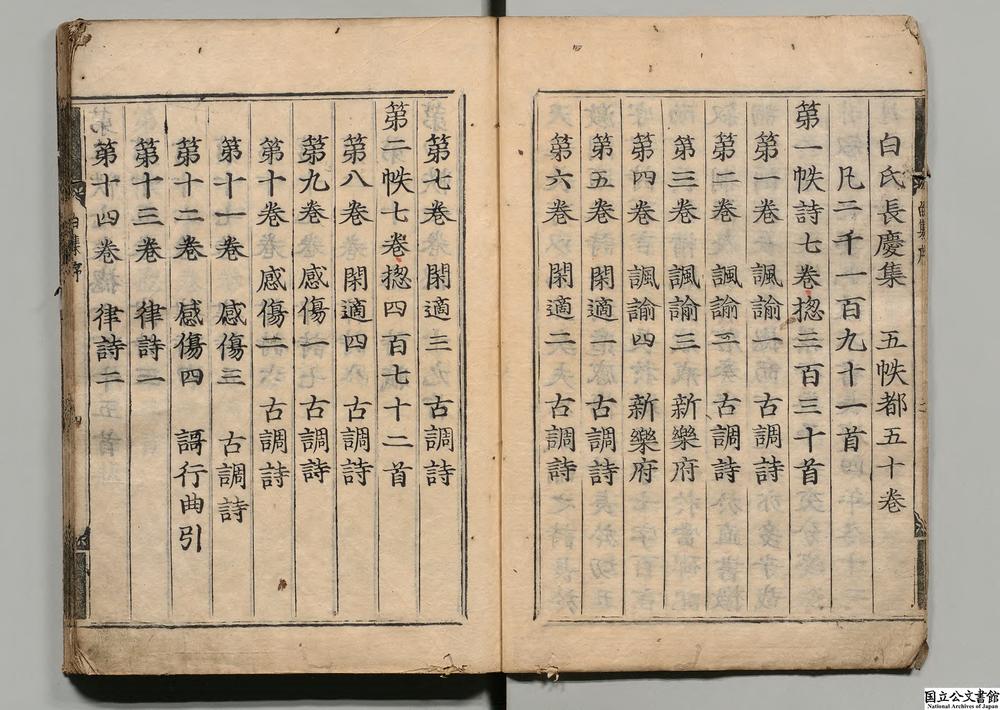 白氏長慶集　五帙都五十卷
凡二千一百九十一首
第一帙詩七卷揔三百三十首
第一卷　諷諭一　古調詩
第二卷　諷諭二　古調詩
第三卷　諷諭三　新樂府
第四卷　諷諭四　新樂府
第五卷　閑適一　古調詩
第六卷　閑適二　古調詩
第七卷　閑適三　古調詩
第二帙七卷揔四百七十二首
第八卷　閑適四　古調詩
第九卷　感傷一　古調詩
第十卷　感傷二　古調詩
第十一卷　感傷三　古調詩
第十二卷　感傷四　謌行曲引
第十三卷　律詩一
第十四卷　律詩二
白集序
四
国立公文書館
National Archives of Japan